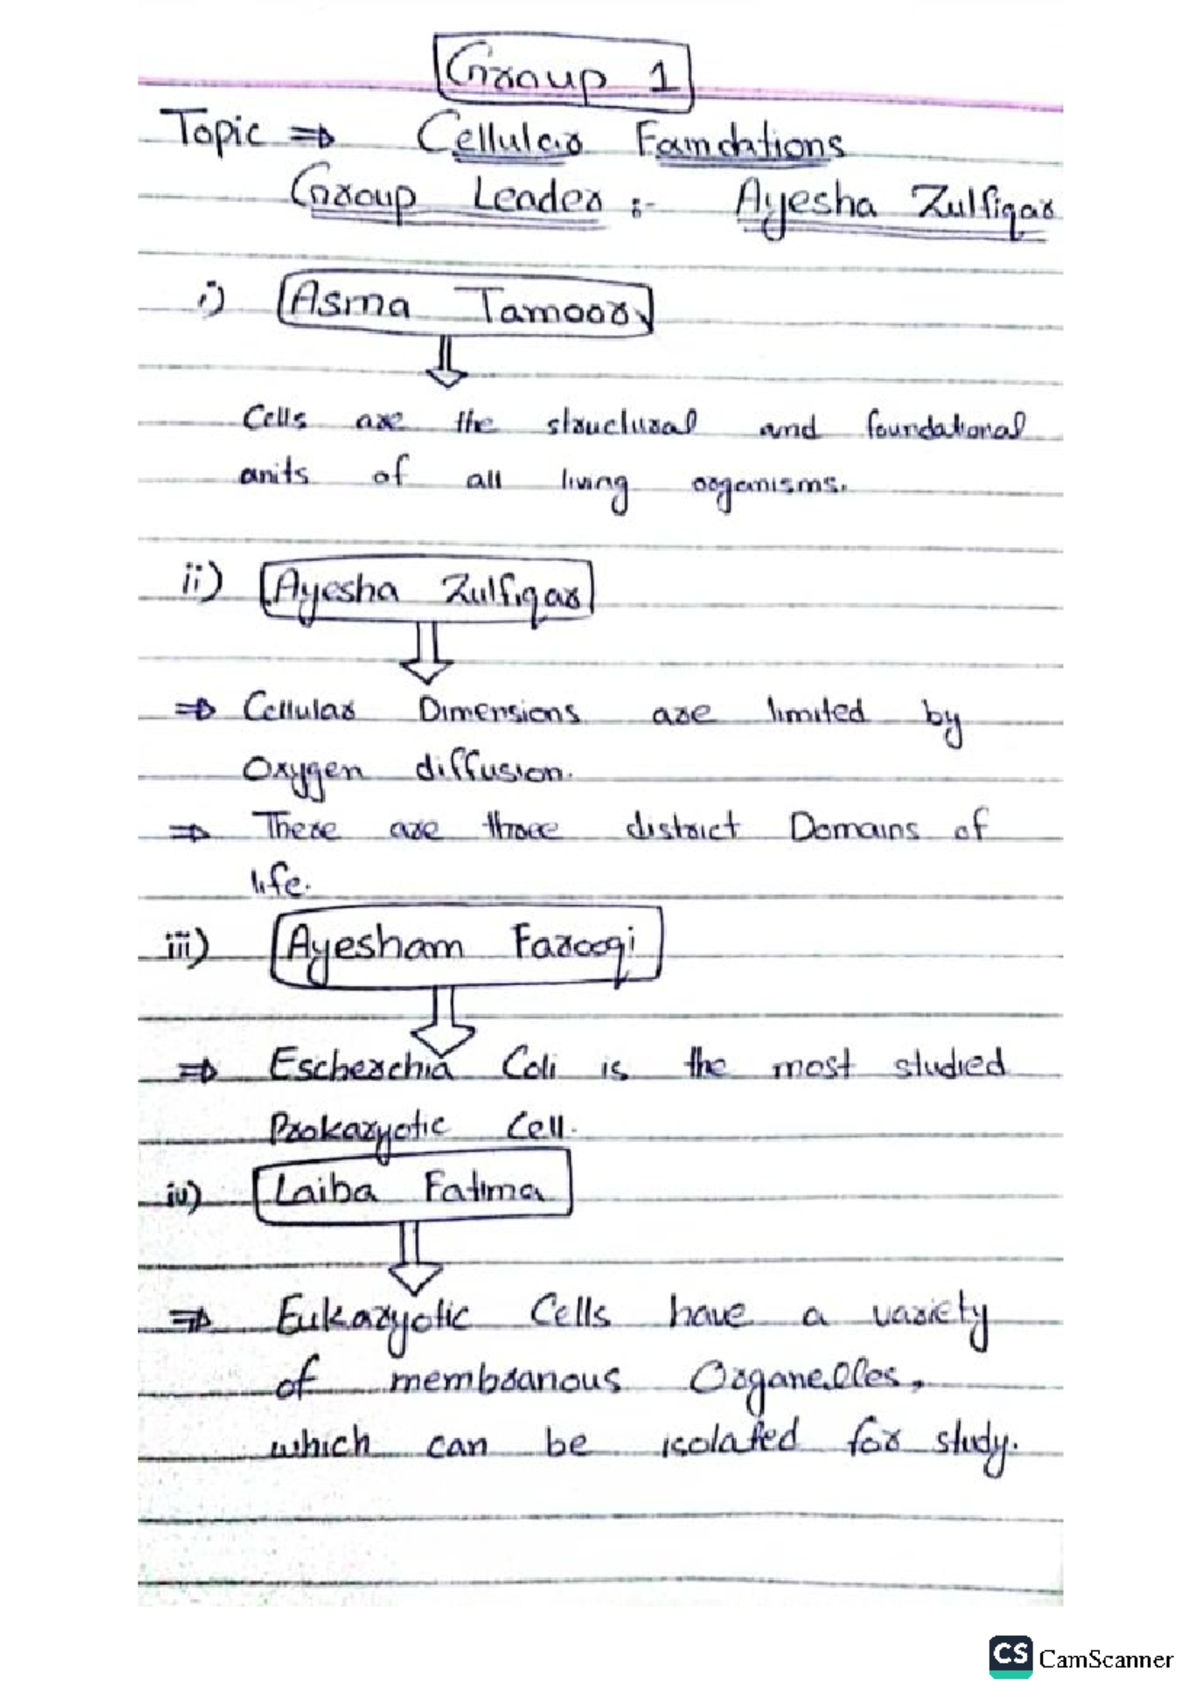 Group 1
Topic ⇒ Cellular Foundations
Group Leader :- Ayesha Zulfiqar
i) Asma Tamoor
Cells are the structural and foundational
units of all living organisms.
ii) Ayesha Zulfiqar
⇒ Cellular Dimensions are limited by
Oxygen diffusion.
⇒ There are three district Domains of
life.
iii) Ayesham Farooqi
⇒ Escherchia Coli is the most studied
Prokaryotic Cell.
iv) Laiba Fatima
⇒ Eukaryotic Cells have a variety
of membranous Organelles,
which can be isolated for study.
CS CamScanner